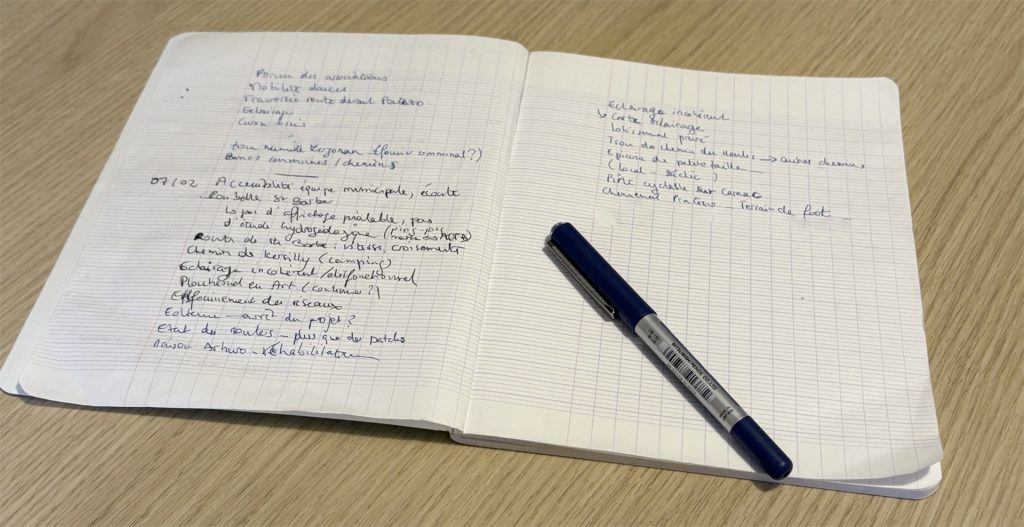 Forum des associations
Mobilité douces
Traversée route devant Plateno
Eclairage
zone humide Kerzonan
Bancs communes / chemins
07/02 Accessibilité équipe municipale, écoute
Rombelle St Barbe
↳ pas d'affichage préalable, pas
d'étude hydrogéologique
Route de Ste Barbe : vitesse, croisements
Chemin de Kersilly (camping)
Eclairage incohérent / disfonctionnel
Plouharnel en Art (continuer ?)
Effouinement des réseaux
Eolienne - arrêt du projet ?
Etat des routes - plus que des patchs
Maison Arthuro - réhabilitation
Eclairage incohérent
↳ Carte éclairage
Lotissement privé
Trou du chemin du → autres chemins
Epicerie de petite taille
(local - Déclic ?)
Piste cyclable sur Carnac
Cheminement Plateno - Terrain de foot